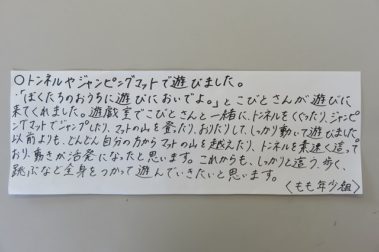 ○トンネルやジャンピングマットで遊びました。
・「ぼくたちのおうちに遊びにおいでよ。」とこびとさんが遊びに
来てくれました。遊戯室でこびとさんと一緒に、トンネルをくぐったり、ジャンピ
ングマットでジャンプしたり、マットの山を登ったり、おりたりして、しっかり動いて遊びました。
以前よりも、どんどん自分の方からマットの山を越えたり、トンネルを素速く這って
おり、動きが活発になったと思います。これからも、しっかりと這う、歩く、
跳ぶなど全身をつかって遊んでいきたいと思います。
〈もも年少組〉